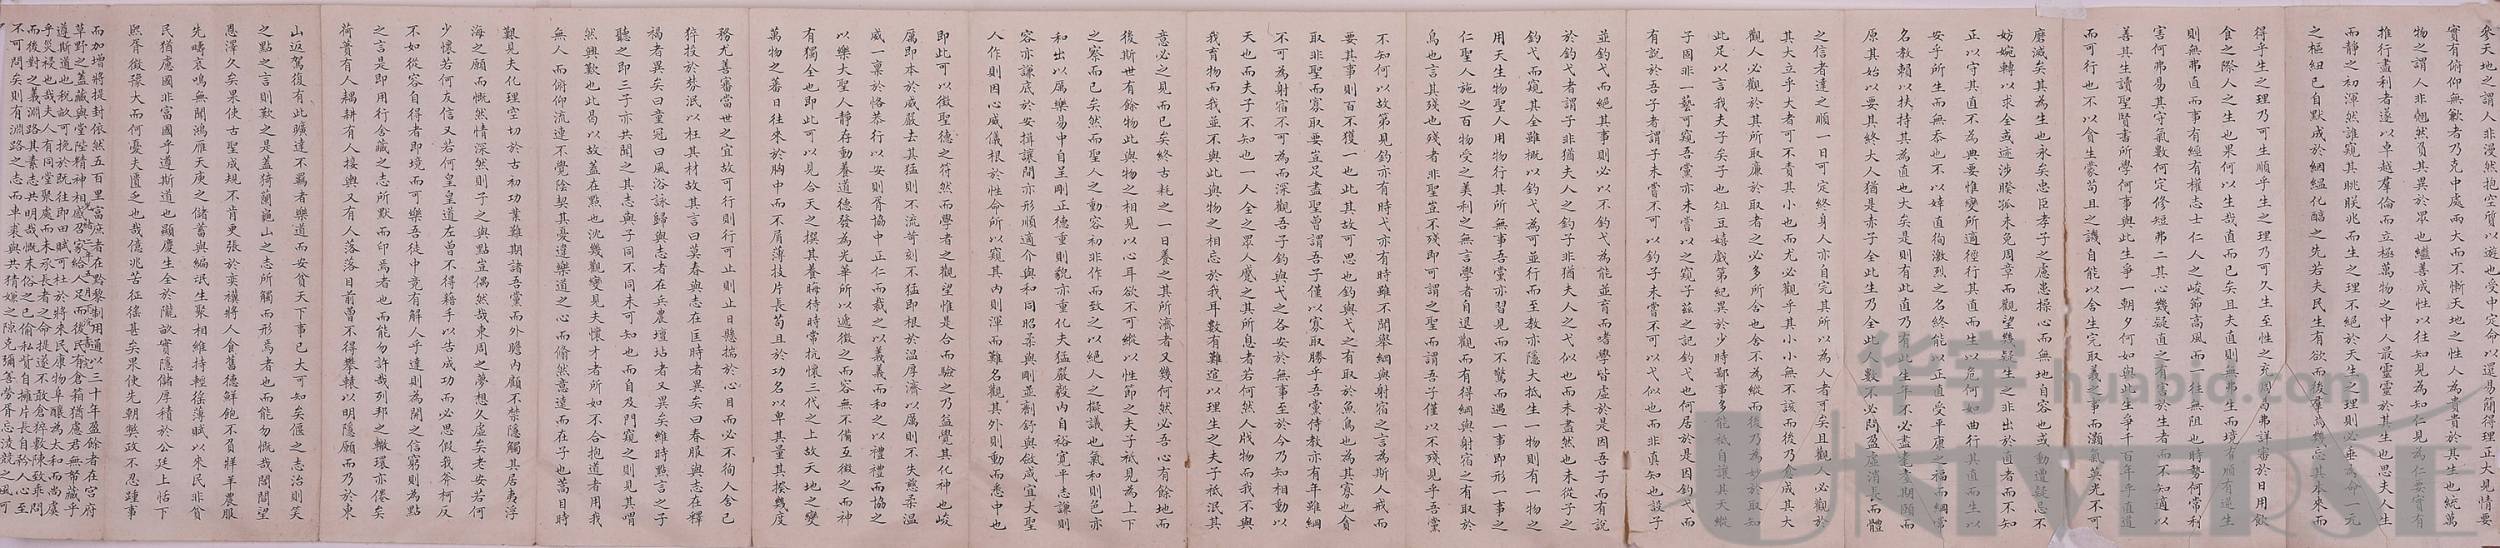 參天地之謂人非漫然抱空質以遊也受中定命以還易簡得理正大見情要
實有俯仰無歉者乃克中處兩大而不慚天地之性人為貴貴於其生也統萬
物之謂人非翹然負其異於眾也繼善成性以往知見為知仁見為仁要實有
推行盡利者遂以卓越羣倫而立極萬物之中人最靈靈於其生也思夫人生
而靜之初渾然誰窺其眹朕兆而生之理不絕於天生之理則必垂為命一元
之樞紐已自默成於絪縕化醇之先若夫民生有欲而後羣焉幾忘其本來而
得乎生之理乃可生順乎生之理乃可久生至性之充周為弗詳審於日用飲
食之際人之生也果何以生哉直而已矣且夫直則無弗生而境有順有逆生
則無弗直而事有經有權志士仁人之峻節高風而一往無阻也時勢何常利
害何弗易其守氣數何定修短弗二其心幾疑直之有害於生者而不知適以
善其生讀聖賢書所學何事與此生爭一朝夕何如與此生爭千百年乎直道
而可行也不以貪生蒙苟且之譏自能以舍生完取義之事而灝氣英光不可
磨滅矣其為生也永矣忠臣孝子之慮患操心而無地自容也或動遭疑忌不
妨婉轉以求全或迹涉睽孤未免周章而觀望幾疑生之非出於直者而不知
正以守其直不為典要惟變所適徑行其直而生以危何如曲行其直而生以
安乎所生而無忝也不以婞直徇激烈之名終能以正直受平康之福而綱常
名教賴以扶持其為直也大矣是則有此直乃有此生年不必盡耄耋期頤而
原其始以要其終大人猶是赤子全此生乃全此人數不必問盈虛消長而體
之信者達之順一日可定終身人亦自完其所以為人者可矣且觀人必觀於
其大立乎大者可不責其小也而尤必觀乎其小小無不該而後乃愈成其大
觀人必觀於其所取廉於取者之必多所舍也舍不為縱而後乃為妙於取知
此足以言我夫子矣子也俎豆嬉戲第紀異於少時鄙事多能祇自讓其天縱
子固非一藝可窺吾黨亦未嘗以之窺子茲之記釣弋也何居於是因釣弋而
有說於吾子者謂子未嘗不可以釣子未嘗不可以弋似也而非真知也設子
並釣弋而絕其事則必以不釣弋為能並育而嗜學皆虛於是因吾子而有說
於釣弋者謂子非猶夫人之釣子非猶夫人之弋似也而未盡然也未從子之
釣弋而窺其全雖概以釣弋為可並行而至教亦隱大抵生一物則有一物之
用天生物聖人用物行其所無事吾黨亦習見而不驚而遇一事即形一事之
仁聖人施之百物受之美利之無言學者自退觀而有得綱與射宿之有取於
鳥也言其殘也殘者非聖豈不殘即可謂之聖而謂吾子僅以不殘見乎吾黨
不知何以故第見釣亦有時弋亦有時雖不聞舉綱與射宿之言為斯人戒而
要其事則百不獲一也此其故可思也釣與弋之有取於魚鳥也為其寡也貪
取非聖而寡取要豈足盡聖曾謂吾子僅以寡取勝乎吾黨侍教亦有年雖綱
不可為射宿不可為而深觀吾子釣與弋之各安於無事至於今乃知相動以
天也而夫子不知也一人全之眾人蹙之其所息者若何然人戕物而我不與
我育物而我並不與此與物之相忘於我耳數有難逭以理生之夫子祇泯其
意必之見而已矣終古耗之一日養之其所濟者又幾何然必吾心有餘地而
後斯世有餘物此與物之相見以心耳欲不可縱以性節之夫子祗見為上下
之察而已矣然而聖人之動容初非作而致之以絕人之擬議也氣和則色亦
和出以厲樂易中自呈剛正德重則貌亦重化夫猛嚴毅內自裕寬平志謙則
容亦謙底於安揖讓間亦形順適介與和同昭柔與剛並劑舒與斂咸宜大聖
人作則因心威儀根於性命所以窺其內則渾而難名觀其外則動而悉中也
即此可以徵聖德之符然而學者之觀望惟是合而驗之乃益覺其化神也峻
厲即本於威嚴去其猛則不流苛刻不猛即根於溫厚濟以厲則不失慈柔溫
威一稟於恪恭行以安則胥協中正仁而裁之以義義而和之以禮禮而協之
以樂大聖人靜存動養道德發為光華所以遞徵之而容無不備互徵之而神
有獨全也即此可以見合天之撰其養晦待時常抗懷三代之上故天地之變
萬物之蕃日往來於胸中而不屑薄技片長苟且於功名以卑其量其揆幾度
務尤善審當世之宜故可行則行可止則止日懸揣於心目而必不徇人舍己
猝投於棼泯以枉其材故其言曰莫春與志在匡時者異矣曰春服與志在釋
褐者異矣曰童冠曰風浴詠歸與志者在兵農壇坫者又異矣維時點言之子
聽之即三子亦共聞之其志與子同不同未可知也而自及門窺之則見其喟
然興歎也此曷以故蓋在點也沈幾觀變見夫懷才者所如不合抱道者用我
無人而俯仰流連不覺陰契其憂違樂道之心而翛然意遠而在子也蒿目時
艱見夫化理空切於古初功業難期諸吾黨而外瞻內顧不禁隱觸其居夷浮
海之願而慨然情深然則子之與點豈偶然哉東周之夢想久虛矣老安若何
少懷若何友信又若何皇皇道左曾不得藉手以告成功而必思假我斧柯反
不如從容自得者即境而可樂吾徒中竟有解人乎達則為開之信窮則為點
之言是即用行舍藏之志所默而印焉者也而能勿許哉列邦之轍環亦倦矣
荷蕢有人耦耕有人接輿又有人落落目前曾不得攀轅以明隱願而乃於東
山返駕復有此曠達不羈者樂道而安貧天下事已大可知矣偃之志治則笑
之點之言則歎之是蓋猗蘭龜山之志所觸而形焉者也而能勿慨哉閭閻望
恩澤久矣果使古聖成規不肯更張於奕禩將人食舊德鮮飽不負牂羊農服
先疇哀鳴無聞鴻雁天庾之儲蓄與編氓生聚相維持輕徭薄賦以來民非貧
民猶慮國非富國乎遵斯道也顯慶生全於隴畝實隱儲厚積於公廷上恬下
熙胥徵豫大而何憂夫匱乏也哉億兆苦征徭甚矣果使先朝弊政不忍踵事
而加增將提封依然五百里富庶者在黔黎制用通以三十年盈餘者在宮府
草野之蓋藏與堂陛精神相感召家給人足而後民有倉箱猶慮君無帑藏乎
遵斯道也稅畝可挽於既往即田賦可杜於將來民康物阜釀為太和而尚虞
乎災祲也哉夫人有同堂聚處而未承長者之命提遂不敢倉猝數陳致乖問
而後對之義淵路其素志共明哉慨末俗之已偷私貲自擁片長自矜人心至
不可問矣則有淵路之志而車裘與共猜嫌之隙克彌善勞胥忘淩競之風可